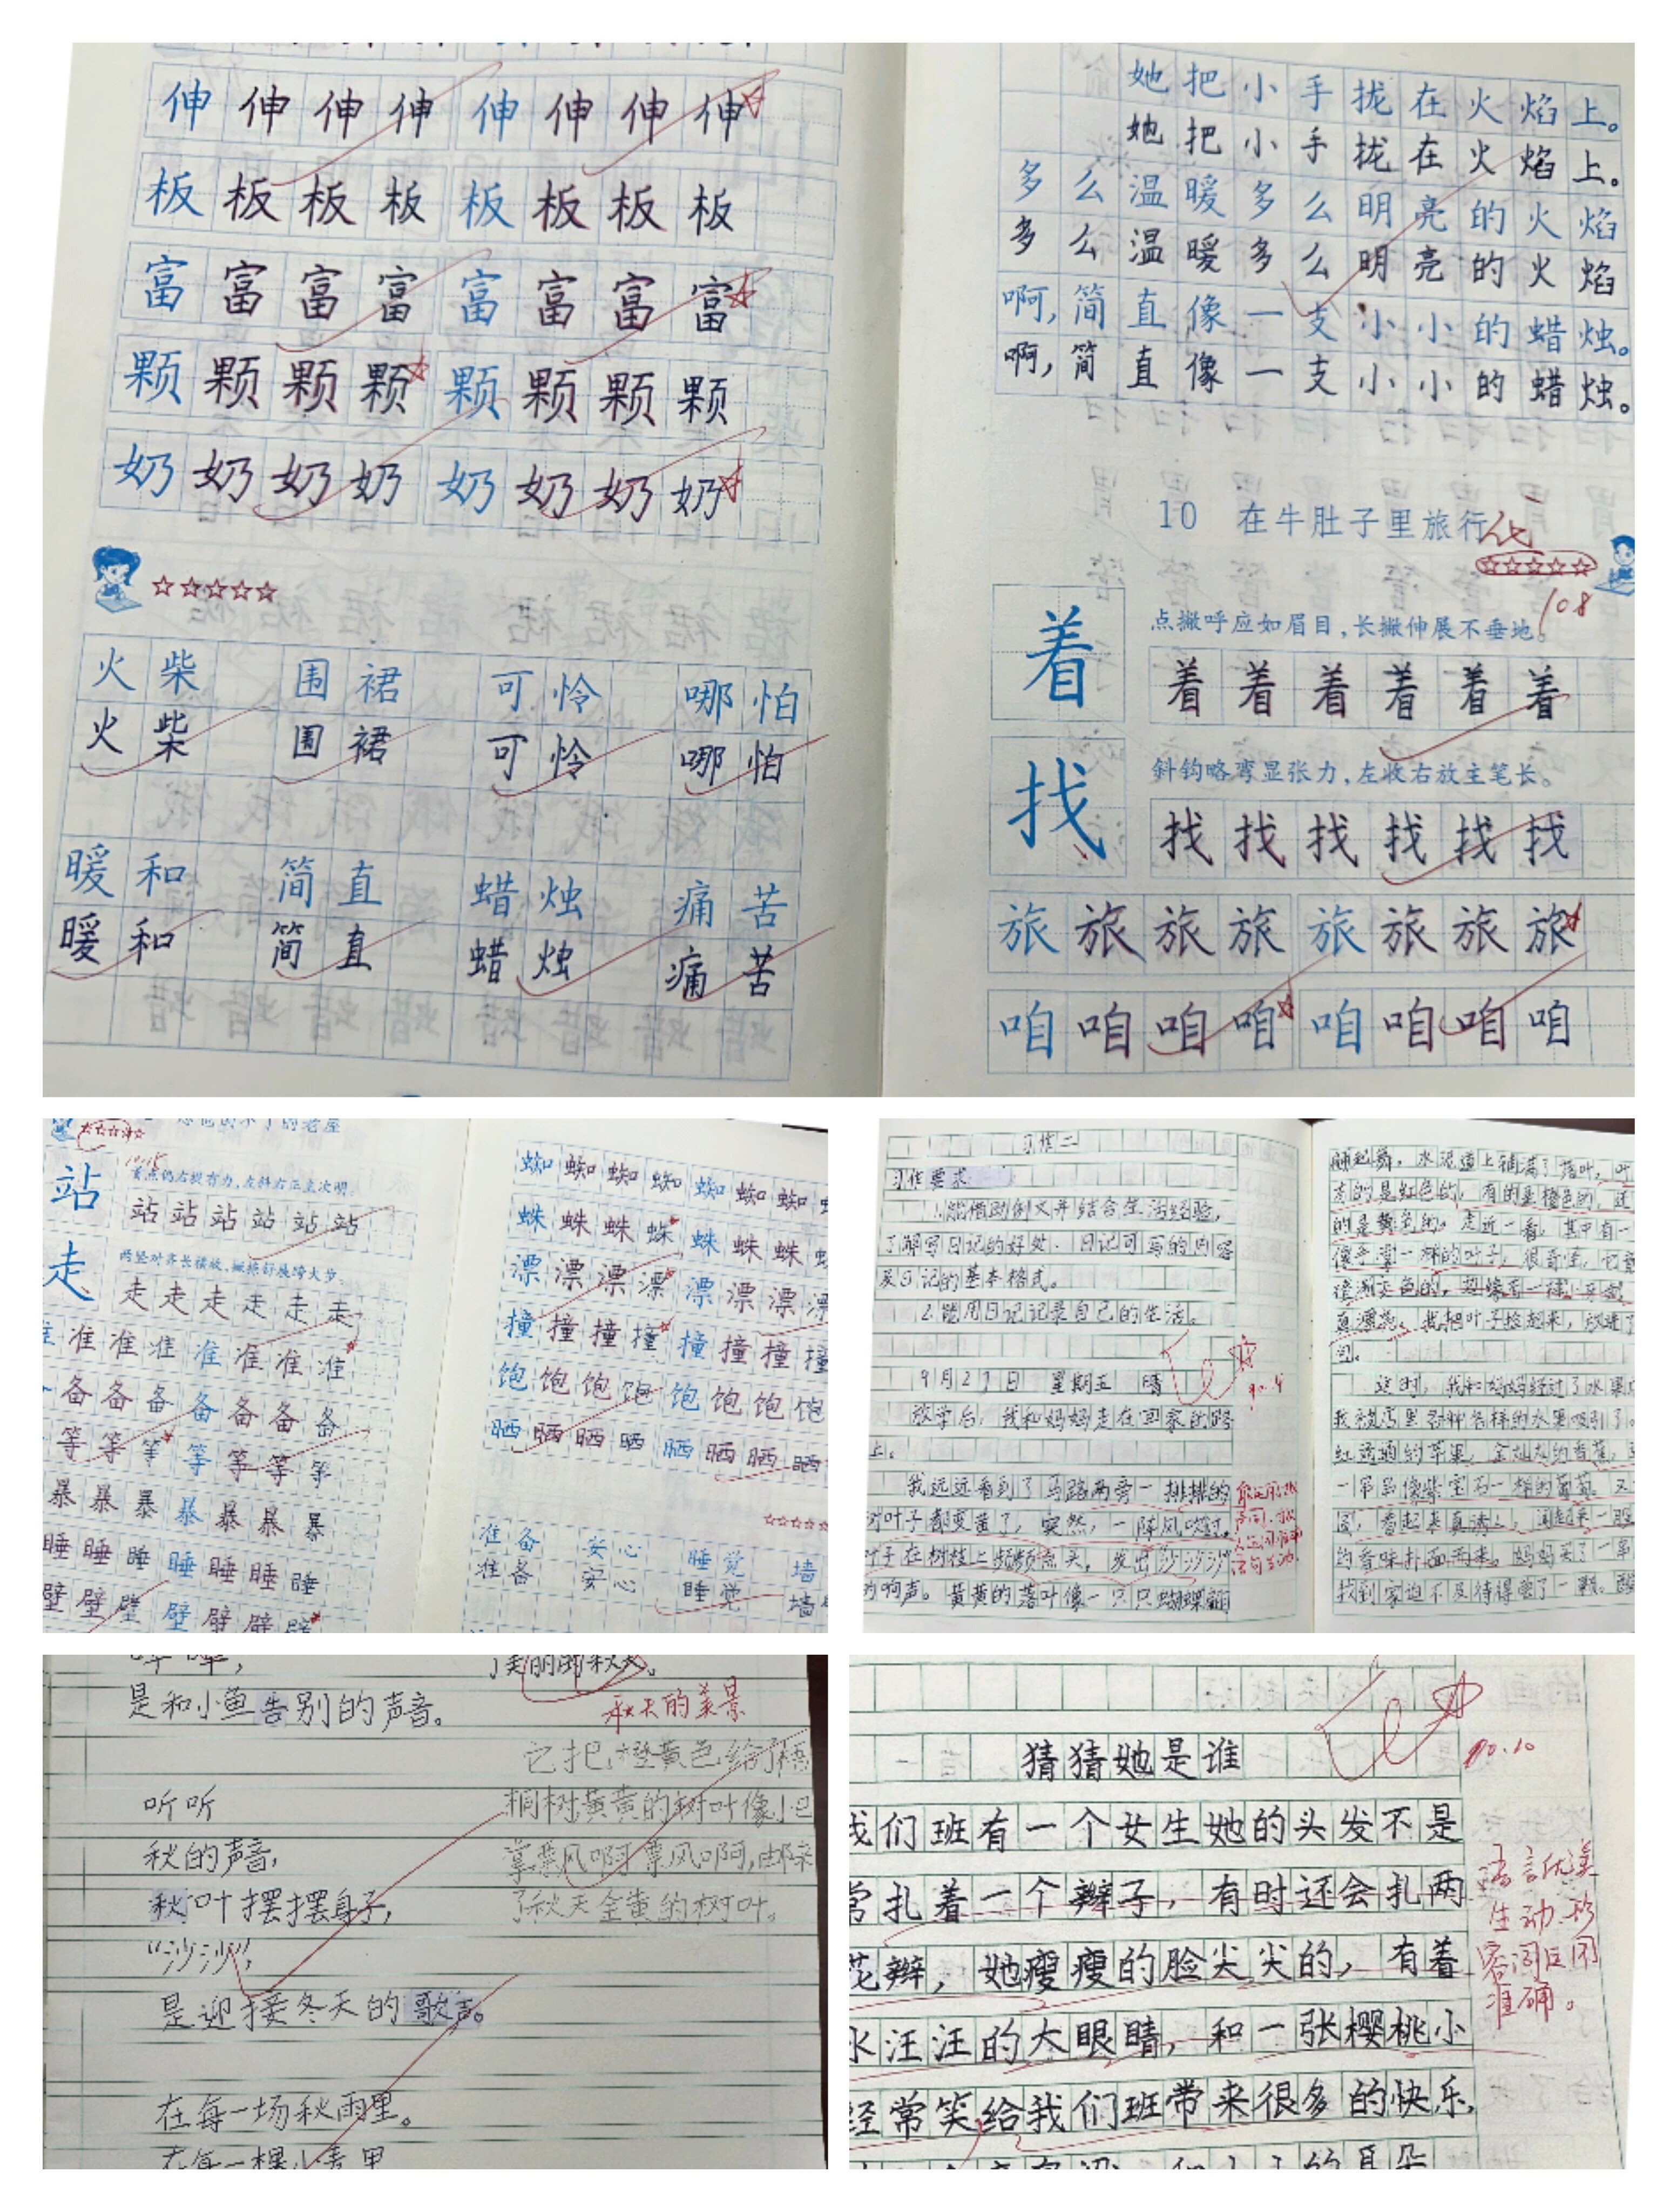 伸伸伸伸伸伸伸伸
板板板板板板板板
富富富富富富富富
颗颗颗颗颗颗颗颗
奶奶奶奶奶奶奶奶
☆☆☆☆☆
火柴 围裙 可怜 哪怕
火柴 围裙 可怜 哪怕
暖和 简直 蜡烛 痛苦
暖和 简直 蜡烛 痛苦
她把小手拢在火焰上。
她把小手拢在火焰上。
多么温暖多么明亮的火焰
多么温暖多么明亮的火焰
啊,简直像一支小小的蜡烛。
啊,简直像一支小小的蜡烛。
10 在牛肚子里旅行
☆☆☆☆☆
10.8
着
点撇呼应如眉目,长撇伸展不垂地。
着着着着着着
找
斜钩略弯显张力,左收右放主笔长。
找找找找找找
旅旅旅旅旅旅旅旅
咱咱咱咱咱咱咱咱
☆☆☆☆☆
10.15
站
首点仍右提有力,左斜右正主次明。
站站站站站站
走
两竖对齐长横放,撇捺舒展跨大步。
走走走走走走
准准准准准准准
备备备备备备备
等等等等等等
暴暴暴暴暴暴暴
睡睡睡睡睡睡睡
壁壁壁壁壁壁壁
蜘蜘蜘蜘蜘蜘蜘
蛛蛛蛛蛛蛛蛛蛛
漂漂漂漂漂漂漂漂
撞撞撞撞撞撞撞撞
饱饱饱饱饱饱饱饱
晒晒晒晒晒晒晒晒
☆☆☆☆☆
准备 安心 睡觉 墙
准备 安心 睡觉 墙
习作二
习作要求:
1.能借助例文并结合生活经验,
了解写日记的好处、日记可写的内容
及日记的基本格式。
2.能用日记记录自己的生活。
9月27日 星期五 晴
放学后,我和妈妈走在回家的路
上。
我远远看到了马路两旁一排排的
树叶子都变黄了,突然,一阵风吹过,
叶子在树枝上频频点头,发出“沙沙沙”
的响声。黄黄的落叶像一只只蝴蝶翩
翩起舞,水泥道上铺满了落叶,叶
有的是红色的,有的是橙色的,还
的是黄色的。走近一看,其中有一
像手掌一样的叶子,很奇怪,它
真漂亮。我把叶子捡起来,放进了
这时,我和妈妈经过了水果
我被店里各种各样的水果吸引了。
红通通的苹果,金灿灿的香蕉,
一串串像紫宝石一样的葡萄。又
圆,看起来真诱人,闻起来一股
的香味扑面而来。妈妈买了一串
找到家迫不及待得尝了一颗。酸
是和小鱼告别的声音。
听听
秋的声音,
秋叶摆摆身子,
“沙沙”,
是迎接冬天的歌声。
在每一场秋雨里。
了美丽的秋天。
秋天的美景
它把橙黄色给了梧
桐树黄黄的树叶像小巴
掌扇风啊扇风啊,扇来
了秋天金黄的树叶。
猜猜她是谁
10.10
我们班有一个女生她的头发不是
常扎着一个辫子,有时还会扎两
花辫,她瘦瘦的脸尖尖的,有着
水汪汪的大眼睛,和一张樱桃小
经常笑给我们班带来很多的快乐,
语言优美
生动.形
容词运用
准确。